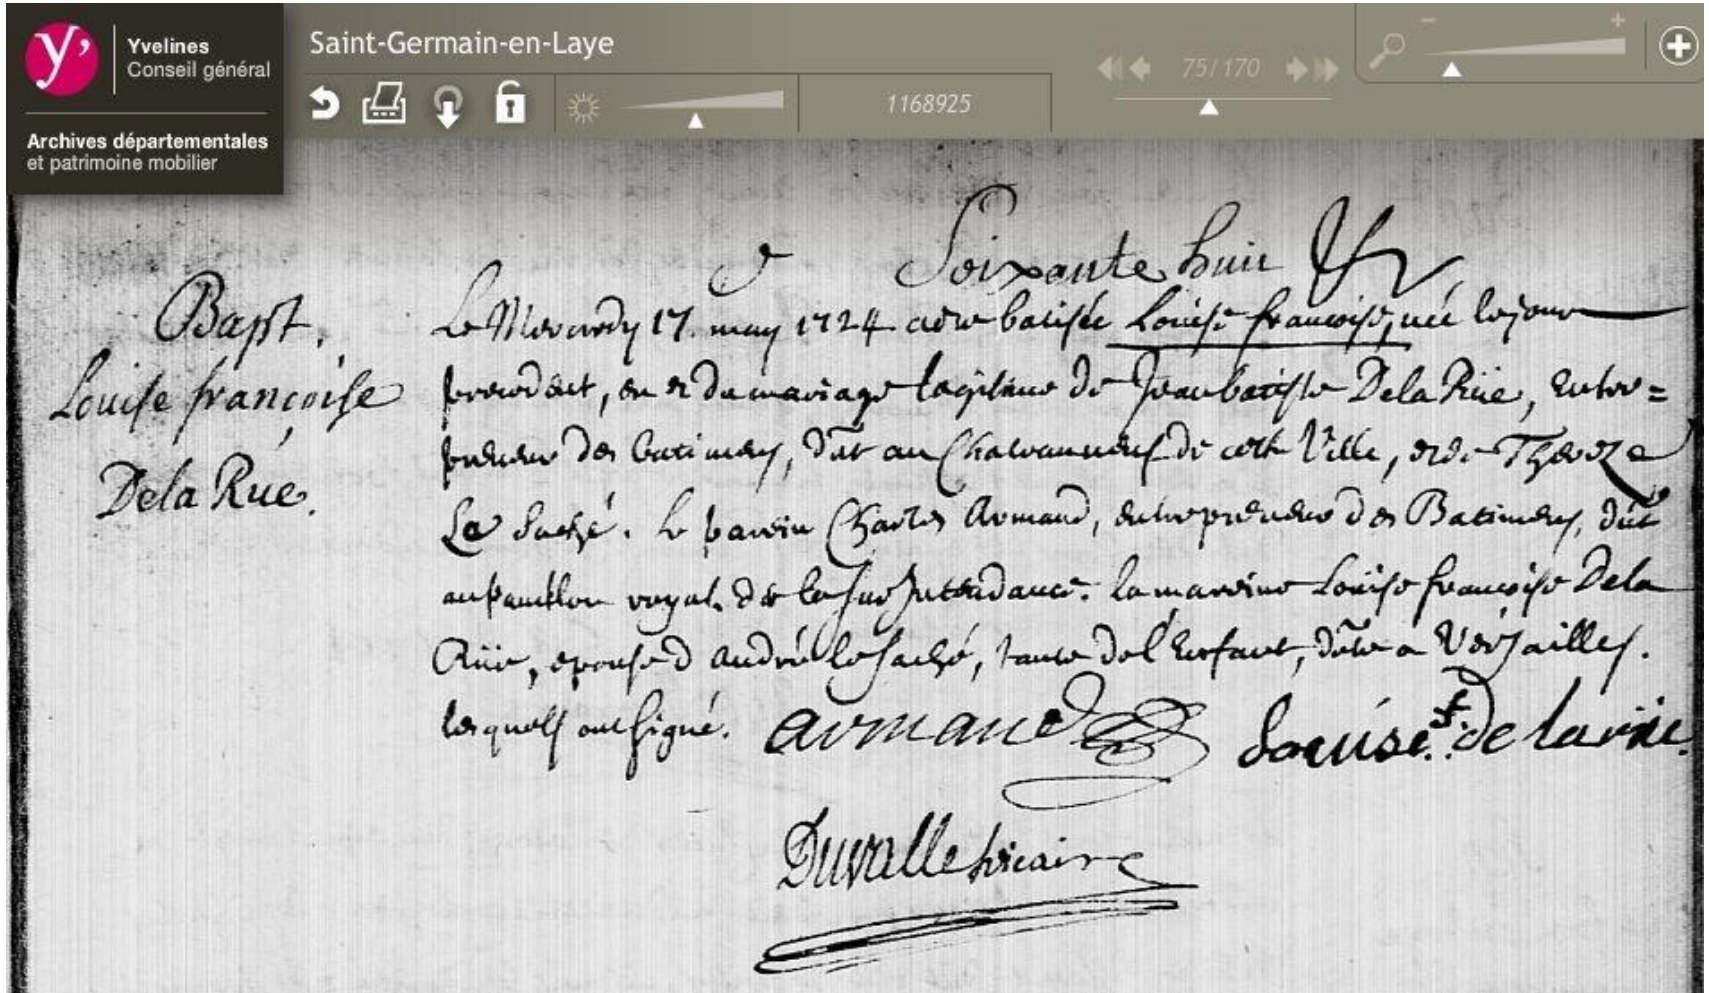 Yvelines
Conseil général
Archives départementales
et patrimoine mobilier
Saint-Germain-en-Laye
75/170
1168925
Soixante huit
Bapt.
Louise françoise
Dela Rüe.
Le Mercredy 17. may 1724 a été batisée Louise françoise, née le jour
precedent, du mariage legitime de Jean batiste Dela Rüe, Entre=
preneur des batimens, dt au Chateauneuf de cette Ville, et de Thereze
Le Saché. le parein Charles Armand, entrepreneur des Batimens, dt
au pavillon royal de la surJntendance. la mareine Louise françoise Dela
Rüe, epouse d'André le saché, tante de l'Enfant, dte a Versailles.
lesquels ont signé. armand Louise f. de larüe.
Duvalle vicaire